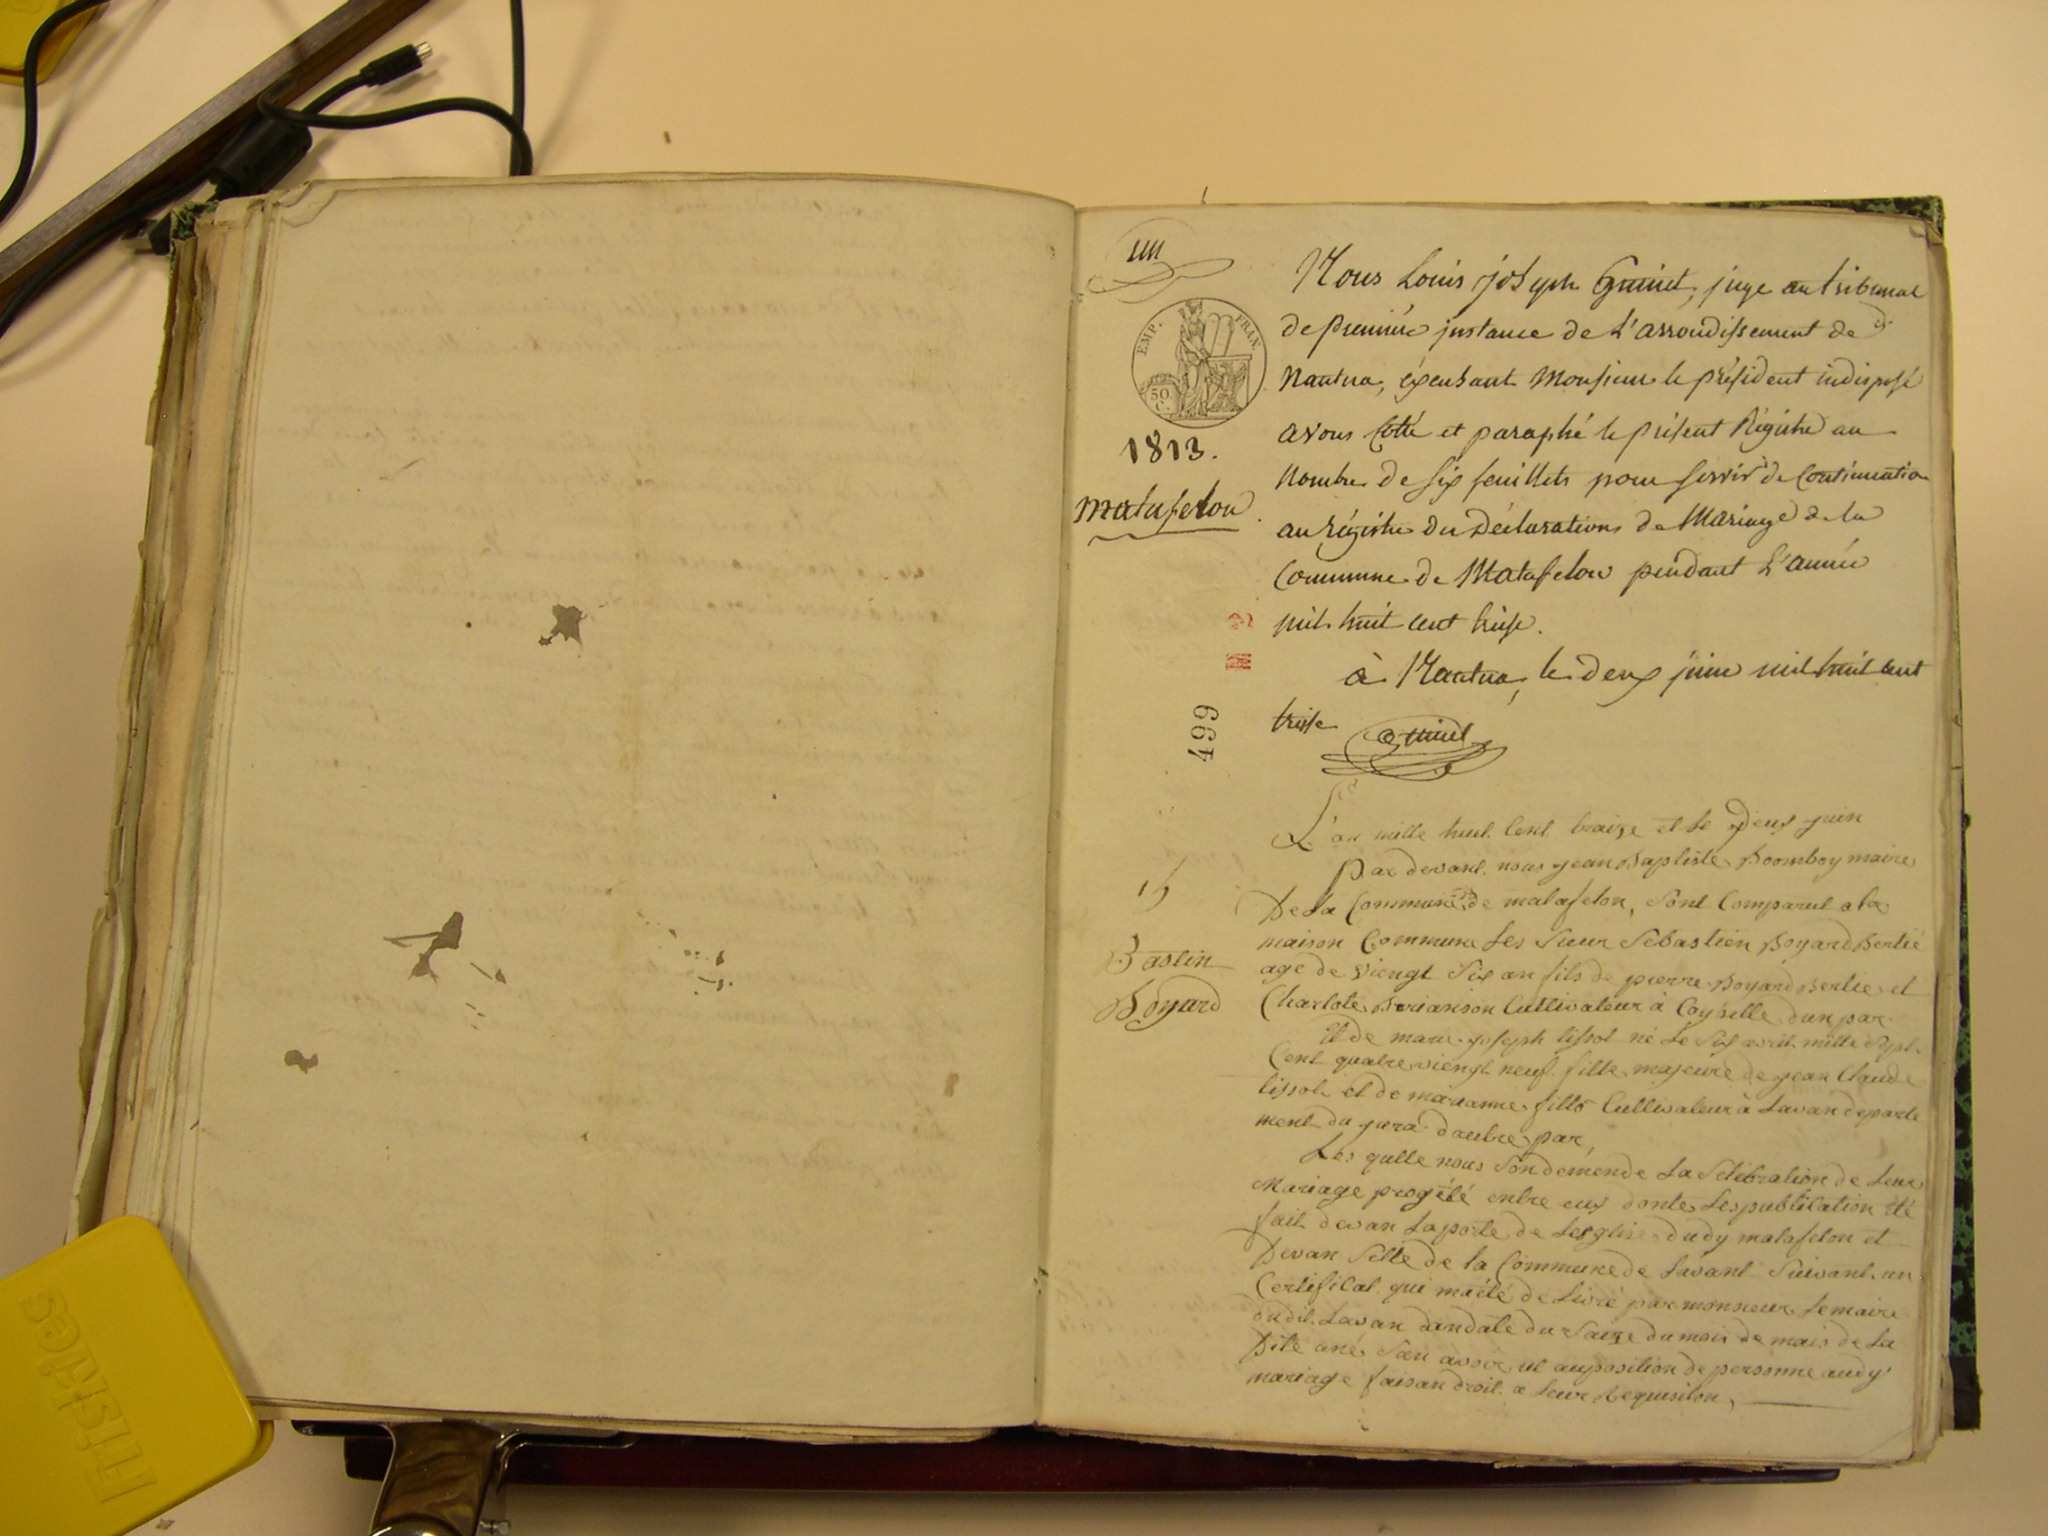 un
EMP. FRAN.
50 C.
1813.
Matafelon
499
Nous Louis joseph Guinet, juge au tribunal
de première instance de L'arrondissement de
Nantua, éxcusant Monsieur le président indisposé
avons Cotté et paraphé le présent Régistre au
nombre de six feuillets pour servir de Continuation
au régistre des Déclarations de Mariage de la
Commune de Matafelon pendant L'année
mil huit cent treise.
à Nantua, le deux juin mil huit cent
treise Guinet
15
Bastin
Boyard
L'an mille huit Cent traize et le Deux juin
Par devant nous jean Baptiste Boomboy maire
De la Commune de matafelon, sont Comparut a la
maison Commune Les sieur Sebastien Boyard Bertié
age de viengt Six an fils de pierre Boyard Bertie et
Charlote Brianson Cultivateur à Coyselle d'un par
Et de marie joseph tissot né Le Six avril mille Sept
Cent quatre viengt neuf fille majeure de jean Claude
tissot et de marianne fillo Cultivateur à Lavan departe
ment du jura d'autre par,
Les quelle nous son demende La Selébration de Leur
Mariage progété entre eux donte Les publication Eté
fait devan La porte de Leglise dudy matafelon et
Devan Selle de la Commune de Lavant Suivant un
Certificat qui ma été de Livré par monsieur Le maire
dudit Lavan dandate du Saize du mois de mais de La
Dite ané San avoir ut auposition de personne audy
mariage faisan droit a Leur Requisition,